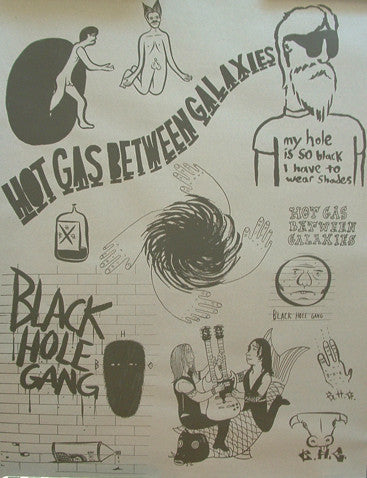 HOT GAS BETWEEN GALAXIES
my hole
is so black
i have to
wear shades
HOT GAS
BETWEEN
GALAXIES
BLACK
HOLE
GANG
B H
BLACK HOLE GANG
B.H.G.
B.H.G.